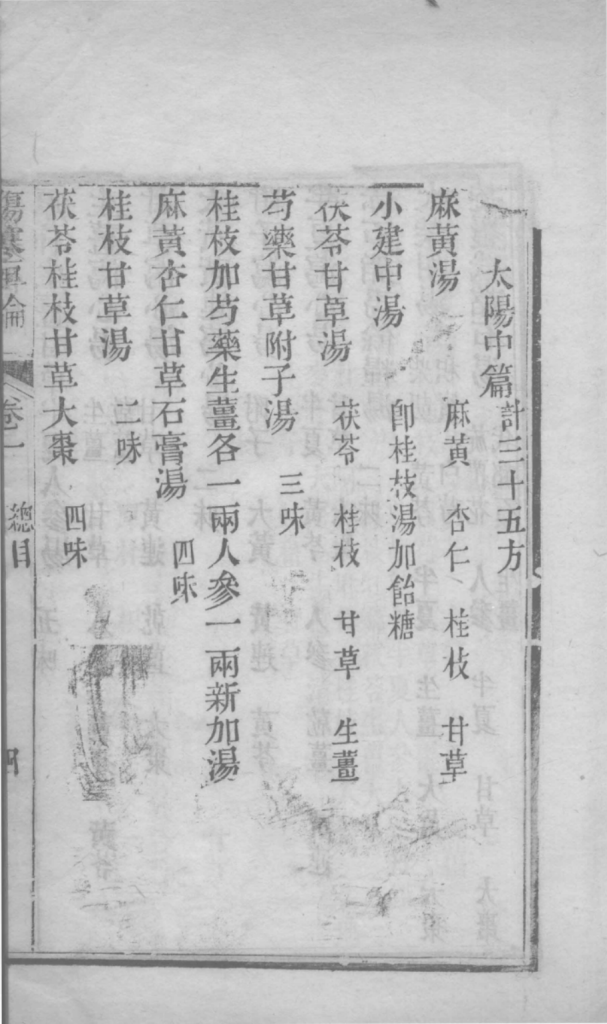 太陽中篇計三十五方
麻黃湯 麻黃 杏仁 桂枝 甘草
小建中湯 卽桂枝湯加飴糖
茯苓甘草湯 茯苓 桂枝 甘草 生薑
芍藥甘草附子湯 三味
桂枝加芍藥生薑各一兩人參一兩新加湯
麻黃杏仁甘草石膏湯 四味
桂枝甘草湯 二味
茯苓桂枝甘草大棗 四味
傷寒 論 卷一 總目 四